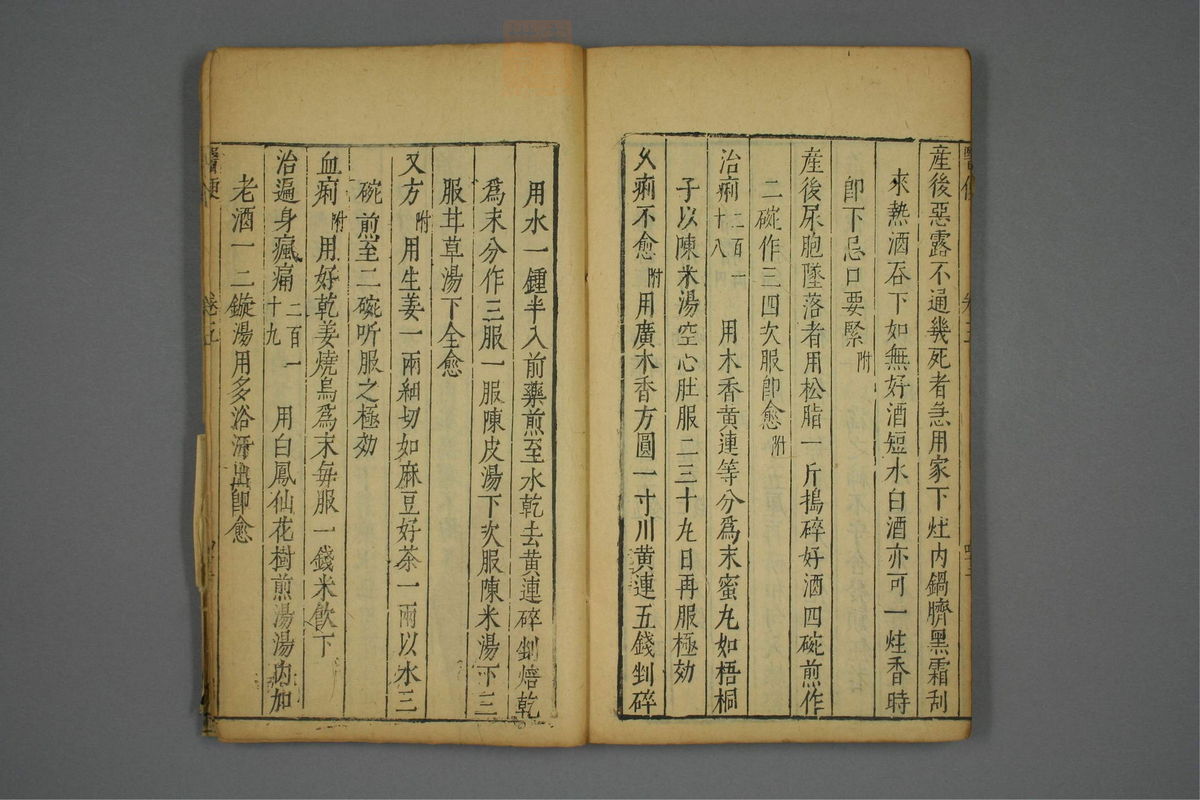 産後惡露不通幾死者急用家下灶内鍋臍黑霜刮
來熱酒吞下如無好酒短水白酒亦可一炷香時
即下忌口要緊附
産後尿胞墜落者用松脂一斤搗碎好酒四碗煎作
二碗作三四次服即愈附
治痢二百一十八 用木香黃連等分爲末蜜丸如梧桐
子以陳米湯空心肚服二三十丸日再服極効
久痢不愈附用廣木香方圓一寸川黃連五錢剉碎
用水一鍾半入前藥煎至水乾去黃連碎剉焙乾
爲末分作三服一服陳皮湯下次服陳米湯下三
服甘草湯下全愈
又方附用生姜一兩細切如麻豆好茶一兩以水三
碗煎至二碗听服之極効
血痢附用好乾姜燒烏爲末每服一錢米飲下
治遍身瘋痛二百一十九 用白鳳仙花樹煎湯湯内加
老酒一二鏇湯用多浴汗出即愈
醫便 卷五